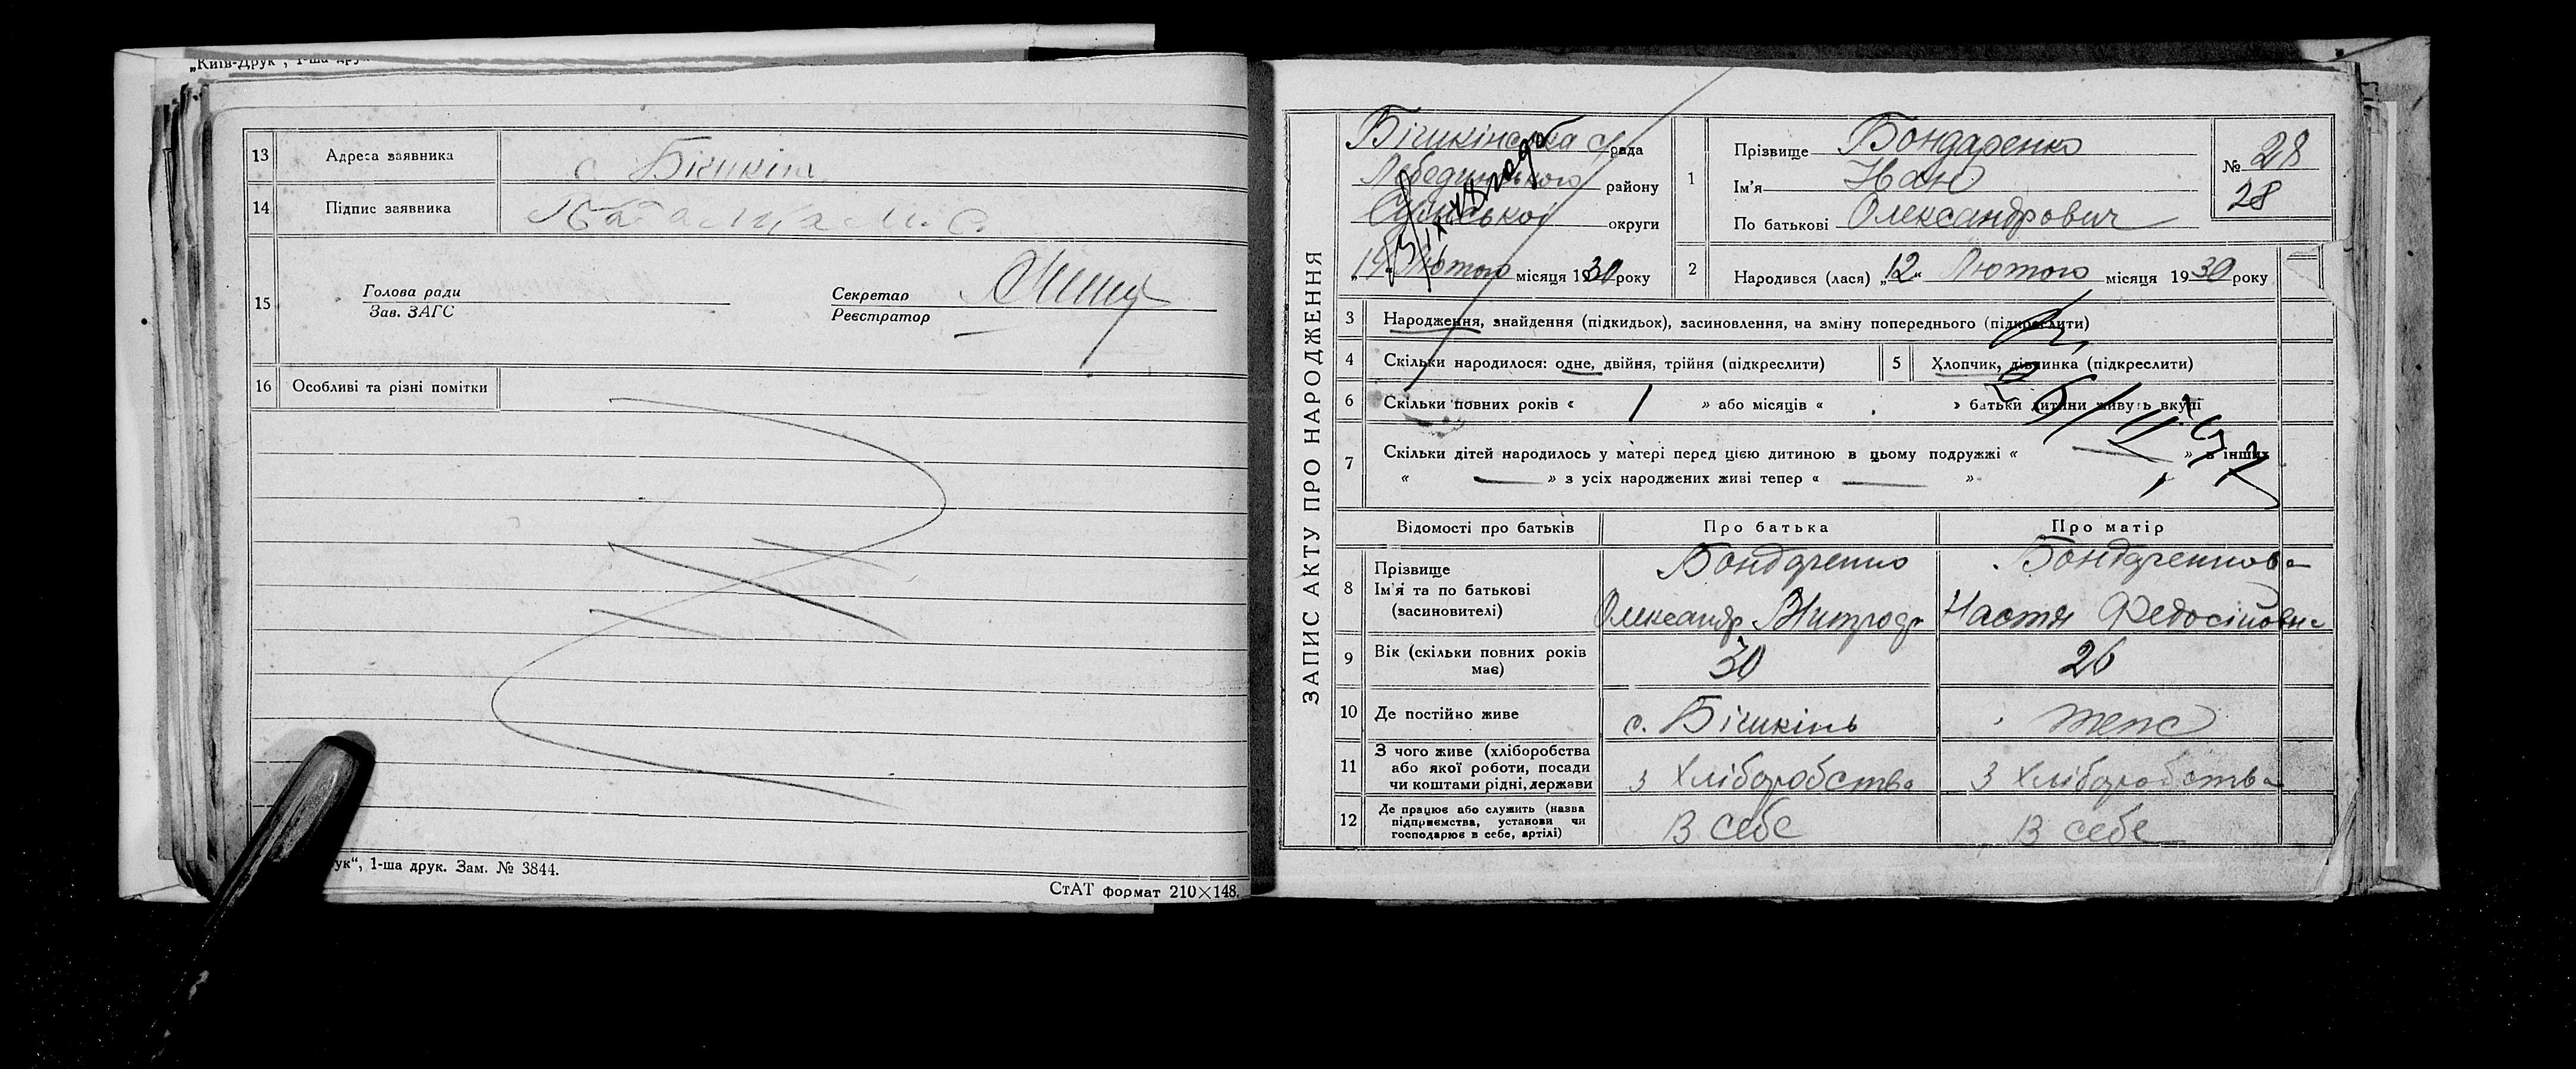 „Київ-Друк“, 1-ша друк.
13 Адреса заявника с. Бішкінь
14 Підпис заявника
15 Голова ради
Зав. ЗАГС
Секретар
Реєстратор
16 Особливі та різні помітки
ук“, 1-ша друк. Зам. № 3844.
СтАТ формат 210×148.
ЗАПИС АКТУ ПРО НАРОДЖЕННЯ
Бішкінська с/рада
Лебединського району
Сумської округи
„14“ Лютого місяця 1930 року
1 Прізвище Бондаренко
Ім'я Иван
По батькові Олександрович
№ 28
28
2 Народився (лася) „12“ Лютого місяця 1930 року
3 Народження, знайдення (підкидьок), засиновлення, на зміну попереднього (підкреслити)
4 Скільки народилося: одне, двійня, трійня (підкреслити)
5 Хлопчик, дівчинка (підкреслити)
6 Скільки повних років « 1 » або місяців « » батьки дитини живуть вкупі
7 Скільки дітей народилось у матері перед цією дитиною в цьому подружжі « — » в інших
« — » з усіх народжених живі тепер « — »
Відомості про батьків Про батька Про матір
8 Прізвище
Ім'я та по батькові
(засиновителі)
Бондаренко
Олександр
Бондаренкова
Настя Федосіповна
9 Вік (скільки повних років
має)
30 26
10 Де постійно живе с. Бішкінь
11 З чого живе (хліборобства
або якої роботи, посади
чи коштами рідні, держави
з Хліборобства З Хліборобства
12 Де працює або служить (назва
підприємства, установи чи
господарює в себе, артілі)
В себе В себе